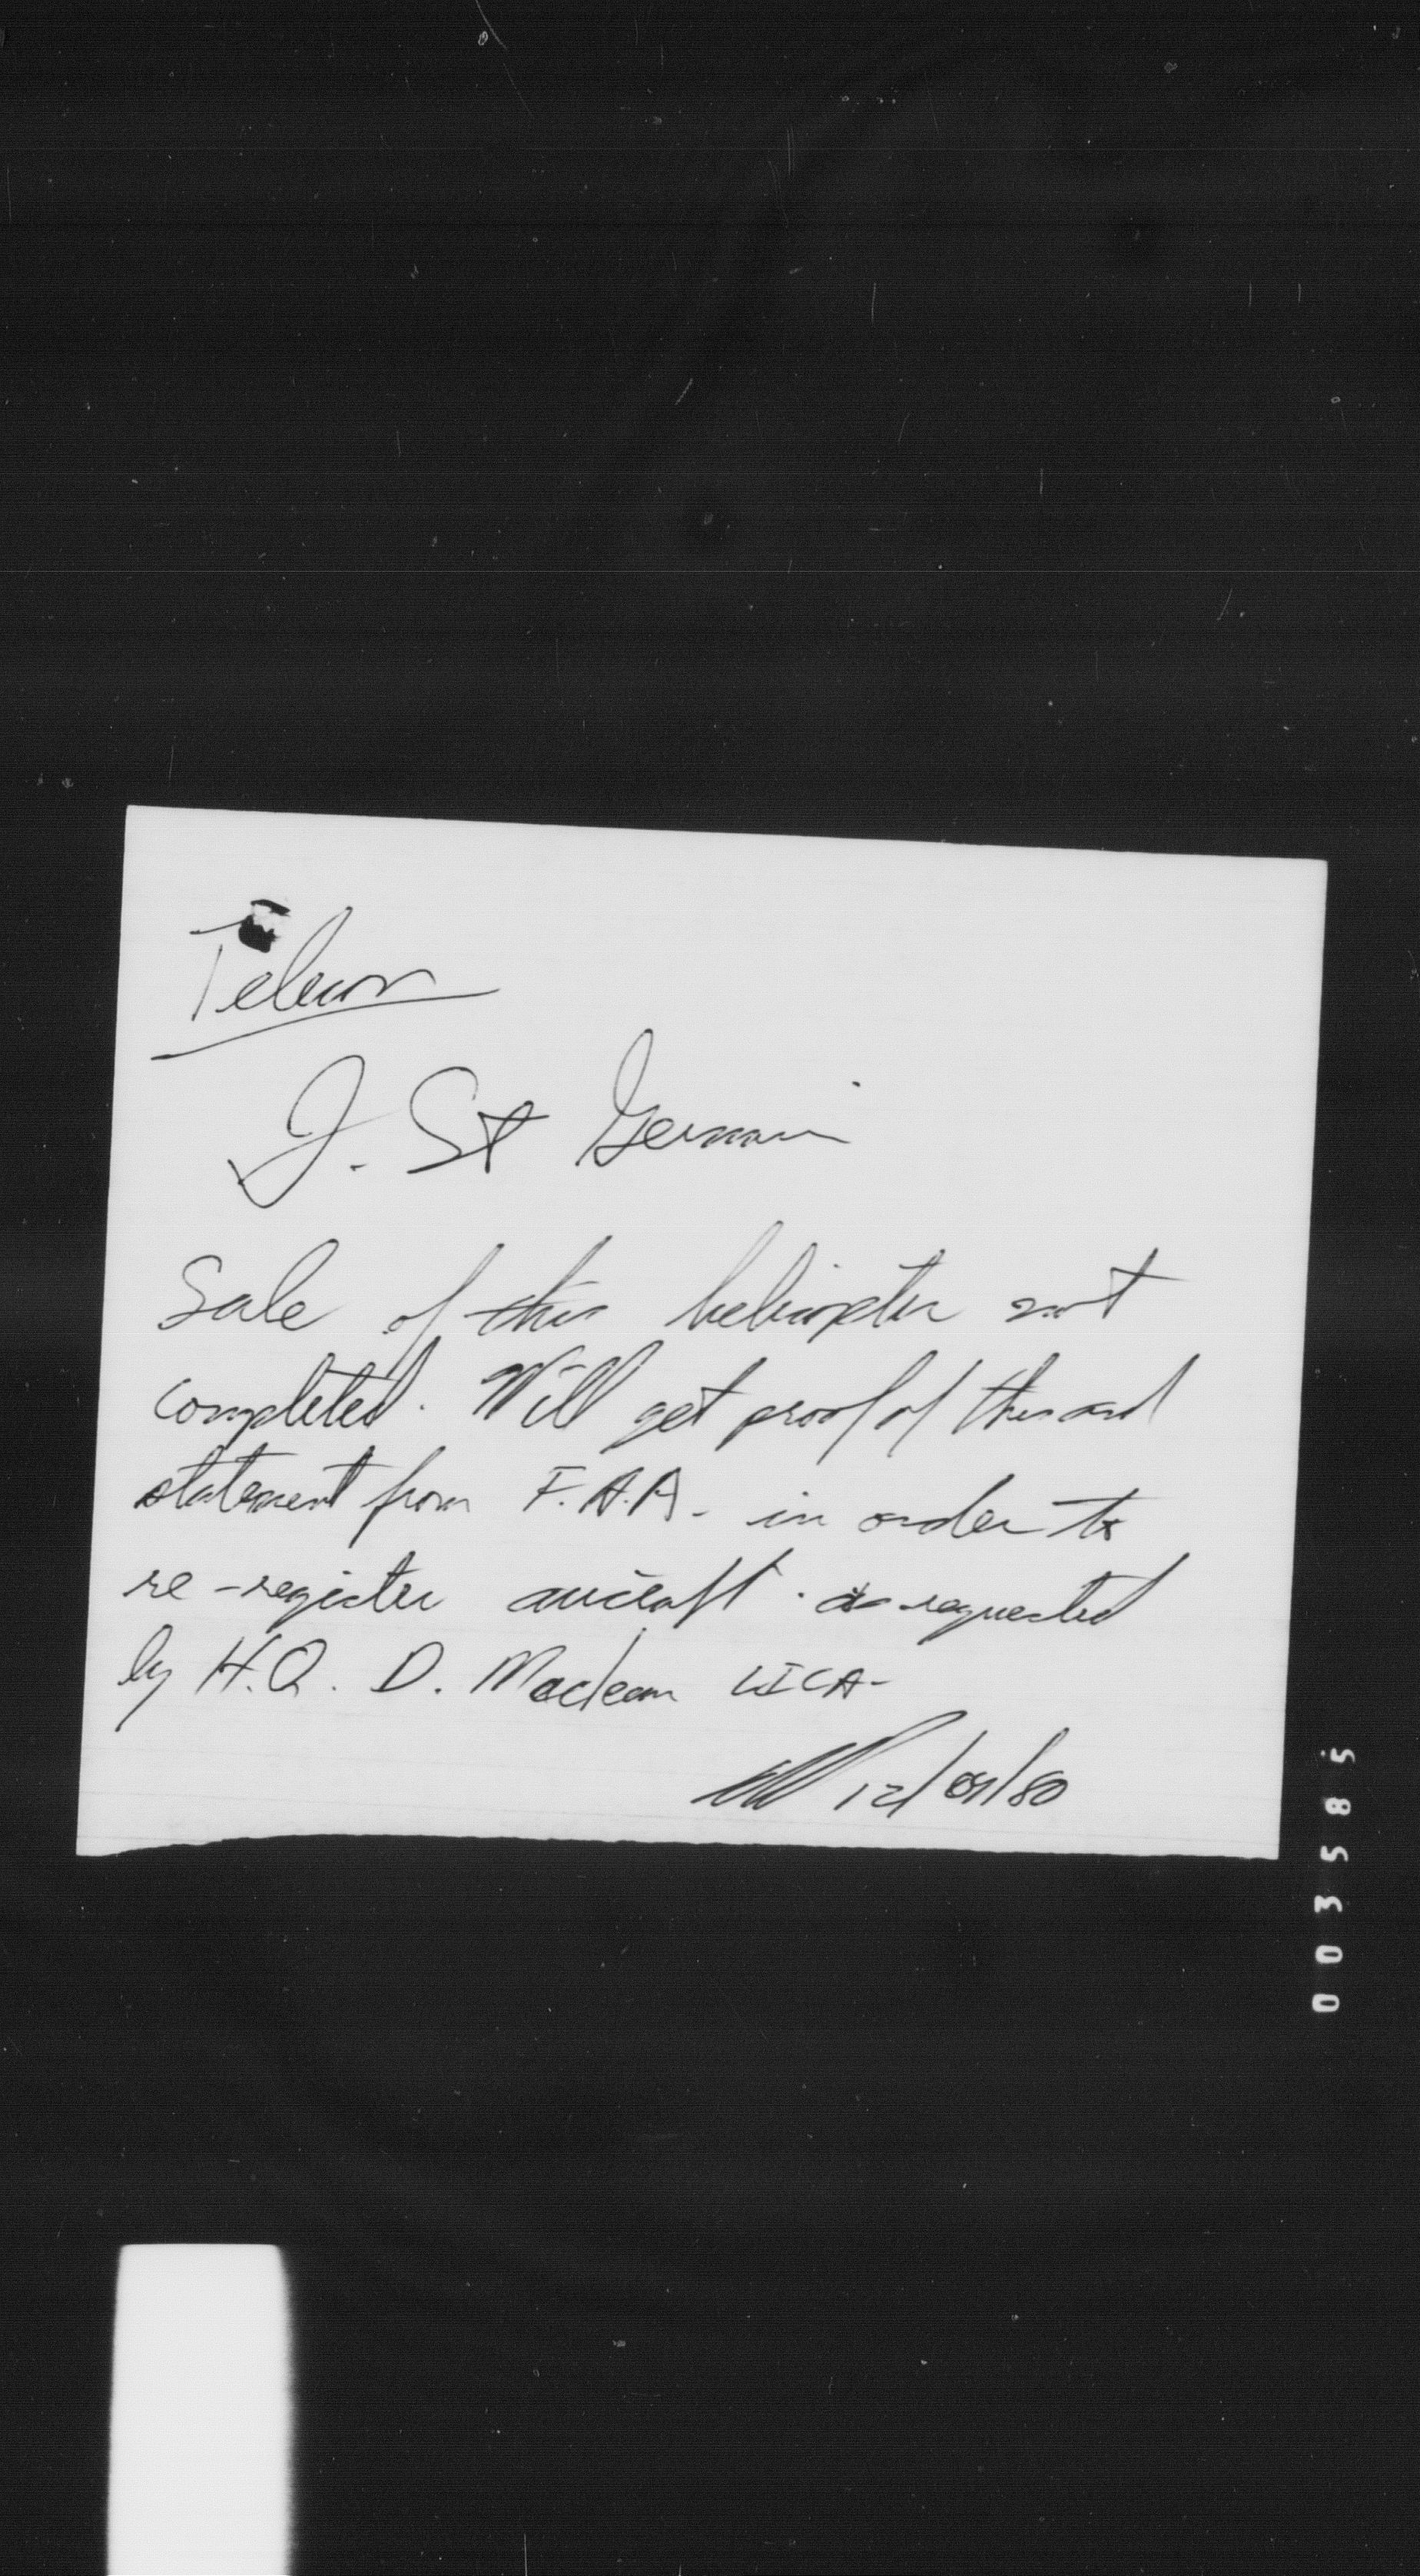 Telcon
J. St Germain
Sale of this helicopter not
completed. Will get proof of this and
statement from F.A.A. in order to
re-register aircraft. as requested
by H.Q. D. Maclean LICA-
12/05/80
003585